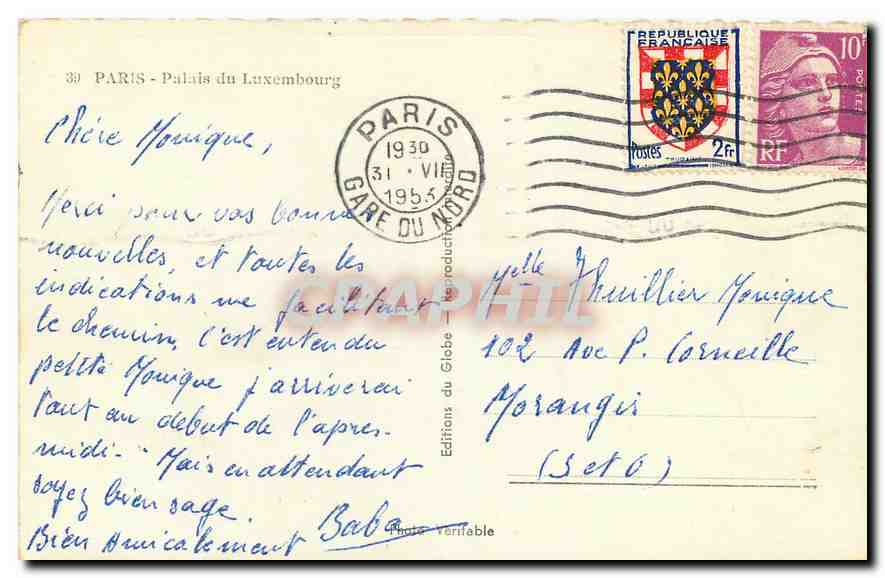 39 PARIS - Palais du Luxembourg
Chère Monique,
Merci pour vos bonnes
nouvelles, et toutes les
indications me facilitent
le chemin, c'est entendu
petite Monique j'arriverai
tout au debut de l'apres-
midi - Mais en attendant
soyez bien sage.
Bien Amicalement Baba
Photo Véritable
Editions du Globe - Reproduction interdite
PARIS
1930
31 · VII
1953
GARE DU NORD
REPUBLIQUE
FRANÇAISE
Postes 2fr
TOURAINE
10F
POSTES
RF
Melle Thuillier Monique
102 Ave P. Corneille
Morangis
(S et O)
CPAPHIL